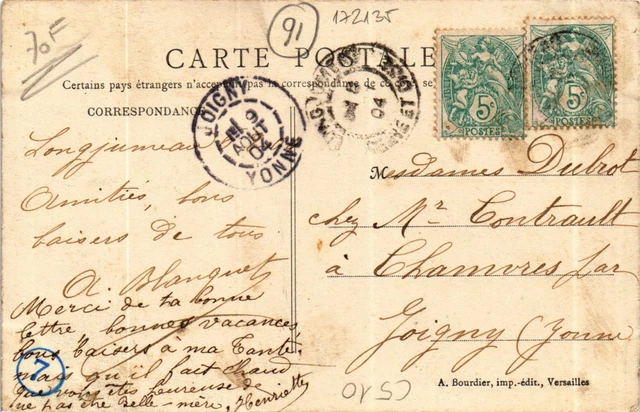 70F
91
172135
CARTE POSTALE
Certains pays étrangers n'acceptent pas la correspondance de ce
CORRESPONDANCE
JOIGNY
AOUT
04
YONNE
04
5c
POSTES
5c
POSTES
Longjumeau
Amitiés, bons
baisers de tous
A. Blanquet
Merci de ta bonne
lettre bonnes vacances,
bons baisers à ma Tante.
mais qu'il fait chaud
que vous êtes heureuse de
ne pas être Belle-mère, Henriette
7
Mesdames Dubrot
chez Mr Contrault
à Chamvres par
Joigny (Yonne
A. Bourdier, imp.-édit., Versailles
CSAO